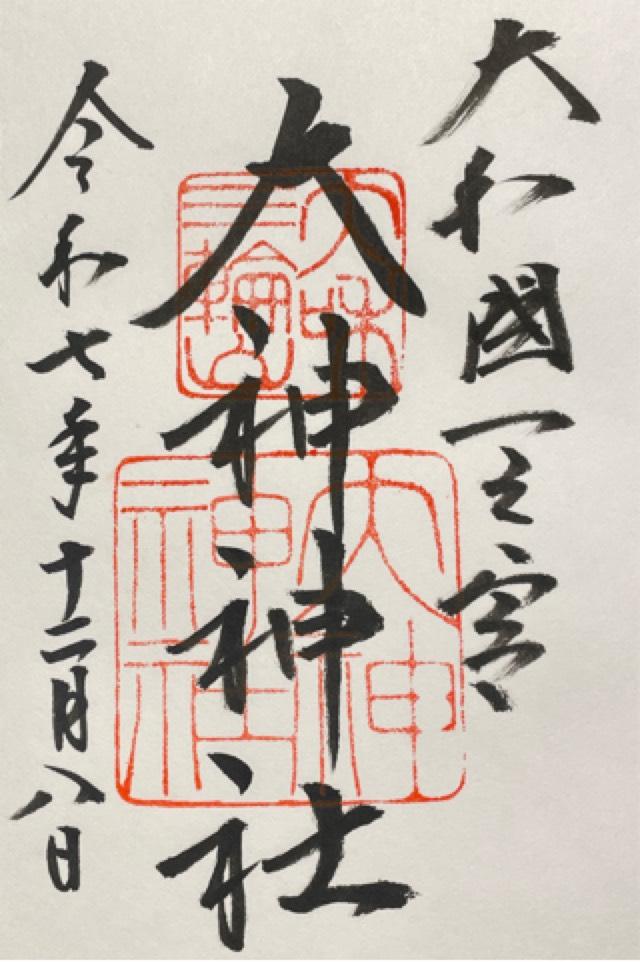 大和國一之宮
大神神社
令和七年十二月八日
大神
神社